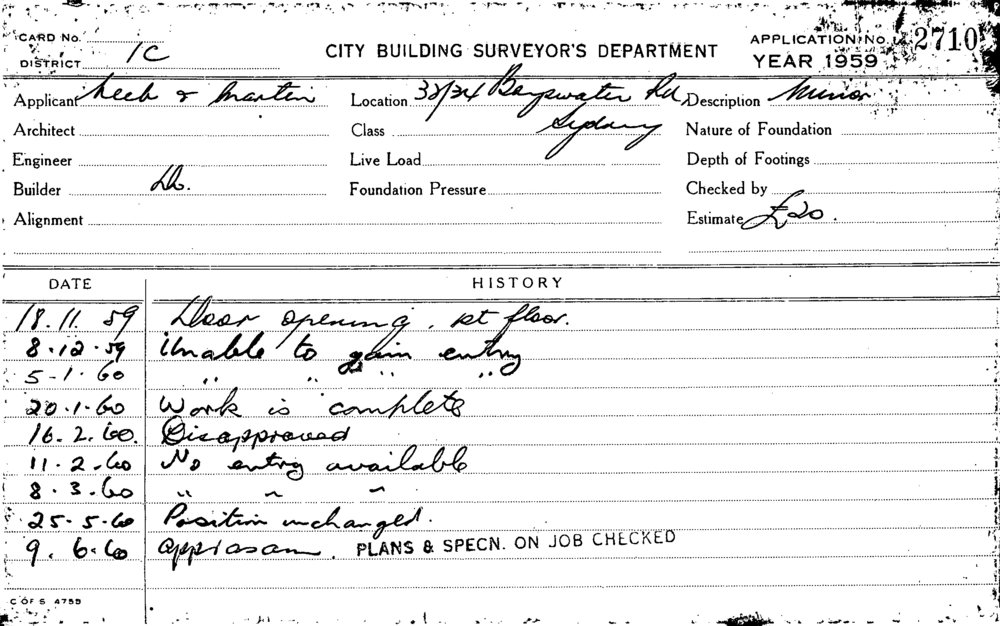 CARD No.
DISTRICT 1C
CITY BUILDING SURVEYOR'S DEPARTMENT
APPLICATION NO. 2710
YEAR 1959
Applicant & Martin Location 32/34 Bayswater Rd, Description Minor
Architect Class Sydney Nature of Foundation
Engineer Live Load Depth of Footings
Builder Foundation Pressure Checked by
Alignment Estimate £20.
DATE HISTORY
18.11.59 Door opening. 1st floor.
8.12.59 Unable to gain entry
5-1.60 " " " "
20.1.60 Work is complete
16.2.60. Disapproved
11.2.60 No entry available
8.3.60 " " "
25-5-60 Position unchanged.
9.6.60 PLANS & SPECN. ON JOB CHECKED
C OF S 4755